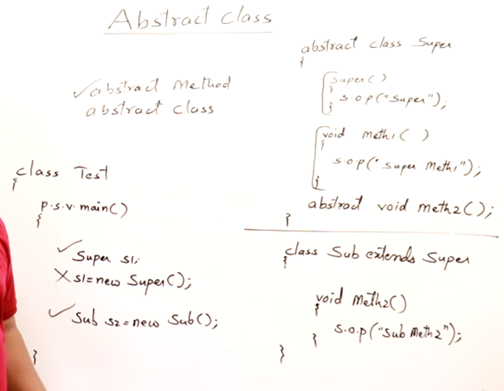 Abstract class
✓abstract Method
abstract class
class Test
{
p.s.v.main()
{
✓Super s1;
X s1=new Super();
✓Sub s2=new Sub();
}
abstract class Super
{
Super()
{
s.o.p("Super");
}
void meth1()
{
s.o.p("Super Meth1");
}
abstract void meth2();
}
class Sub extends Super
{
void Meth2()
{
s.o.p("Sub Meth2");
}
}